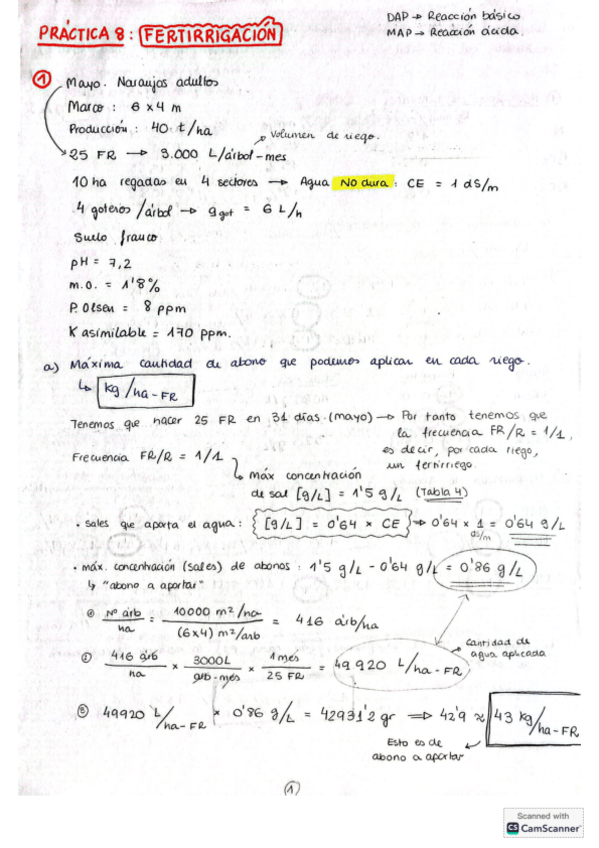 DAP → Reacción básico
MAP → Reacción ácida.
PRÁCTICA 8: FERTIRRIGACIÓN
① Mayo. Naranjos adultos
Marco: 6 x 4 m
Producción: 40 t/ha
Volumen de riego.
25 FR → 3.000 L/árbol-mes
10 ha regadas en 4 sectores → Agua No dura: CE = 1 dS/m
4 goteros/árbol → q got = 6 L/h
Suelo franco
pH = 7,2
m.o. = 1'8%
P. Olsen = 8 ppm
K asimilable = 170 ppm.
a) Máxima cantidad de abono que podemos aplicar en cada riego.
↳ kg/ha-FR
Tenemos que hacer 25 FR en 31 días (mayo) → Por tanto tenemos que
la frecuencia FR/R = 1/1,
es decir, por cada riego,
un fertirriego.
Frecuencia FR/R = 1/1
↳ máx concentración
de sal [g/L] = 1'5 g/L (Tabla 4)
• sales que aporta el agua: {[g/L] = 0'64 x CE} ⇒ 0'64 x 1 = 0'64 g/L
dS/m
• máx. concentración (sales) de abonos: 1'5 g/L - 0'64 g/L = 0'86 g/L
↳ "abono a aportar"
① Nº árb/ha = 10000 m²/ha / (6x4) m²/arb = 416 árb/ha
② 416 árb/ha x 3000L/arb-més x 1 més/25 FR = 49920 L/ha-FR
Cantidad de
agua aplicada
③ 49920 L/ha-FR x 0'86 g/L = 42931'2 gr ⇒ 42'9 ≈ 43 kg/ha-FR
Esto es de
abono a aportar
1
Scanned with
CS CamScanner